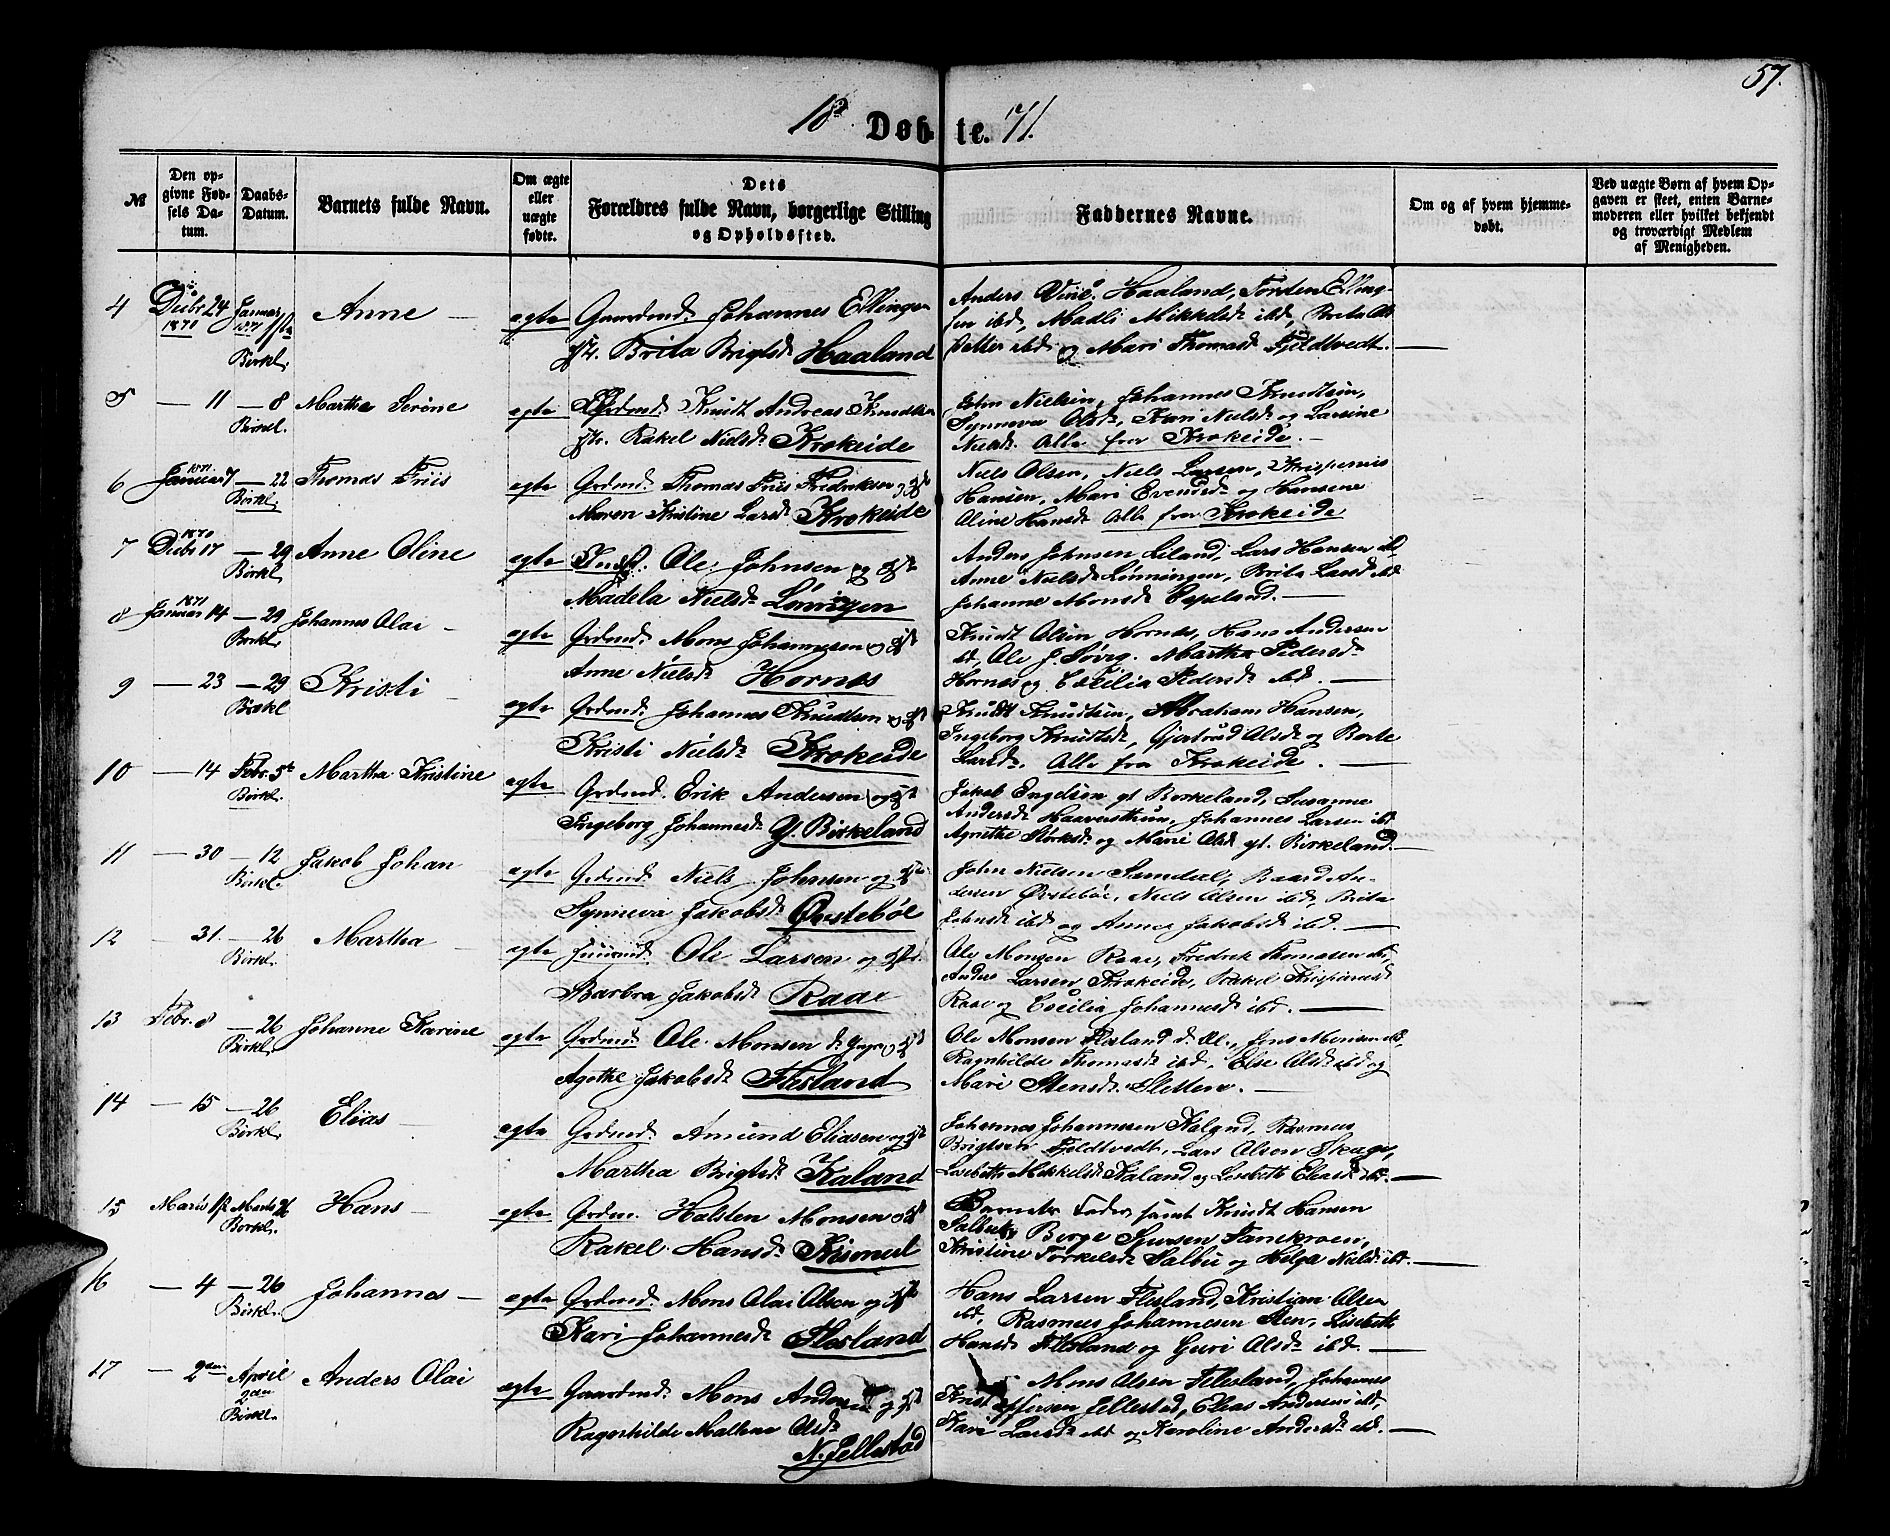 57.
18 Døbte. 71.
№
Den opgivne Fødsels Datum.
Daabs-Datum.
Barnets fulde Navn.
Om ægte eller uægte fødte.
Dets Forældres fulde Navn, borgerlige Stilling og Opholdssted.
Faddernes Navne.
Om og af hvem hjemmedøbt.
Ved uægte Børn af hvem Opgaven er skeet, enten Barnemoderen eller hvilket bekjendt og troværdigt Medlem af Menigheden.
4 Decbr 24 1870 Januar 1871 Birkl. Anne ægte Gaardmd. Johannes Ellingsen
Brita Brigtsd. Haaland
Anders Haaland, Torsten Elling-
sen ibd, Madli Mikkelsd ibd, Brita
og Mari Thomasd Fjeldtvedt.
5 — 11 — 8 Birkl. Martha Serine ægte Knudt Andreas Knudtsen
Rakel Nielsd. Krokeide
Nielsen, Johannes Knudtsen,
Synneva Olsd, Kari Nielsd og Larsine
Nielsd. Alle fra Krokeide.
6 Januar 7 1871 — 22 Birkl. Thomas Friis ægte Grdmd. Thomas Friis Fredriksen og
Maren Kristine Larsd. Krokeide
Niels Olsen, Niels Larsen, Krispernis
Hansen, Mari Evendsd. og Hansene
Oline Hansd. Alle fra Krokeide
7 Decbr 17 1870 — 29 Birkl. Anne Oline ægte Ole Johnsen og
Madela Nielsd. Lønningen
Anders Johnsen Liland, Lars Hansen ibd,
Anne Nielsd Lønningen, Brita Larsd ibd
Johanne Monsd. Espeland.
8 Januar 14 1871 — 29 Birkl. Johannes Olai ægte Grdmd. Mons Johannesen og
Anne Nielsd. Hornes
Knudt Olsen Hornes, Hans Andersen
ibd, Ole J. Søvig. Martha Pedersd.
Hornes og Cecilia Pedersd ibd.
9 — 23 — 29 Birkl Kristi ægte Grdmd. Johannes Knudtsen og
Kristi Nielsd. Krokeide
Knudt Knudtsen, Abraham Hansen,
Ingeborg Knudtsd., Gjertrud Olsd og Berte
Larsd. Alle fra Krokeide.
10 — 14 Febr. 5te Birkl. Martha Kristine ægte Grdmd. Erik Andersen og
Ingeborg Johannesd. Y. Birkeland
Jakob Engelsen yt Birkeland, Susanne
Andersd Haaversthun, Johannes Larsen ibd.
Agnethe Størksd. og Marie Olsd yt. Birkeland.
11 — 30 — 12 Birkl. Jakob Johan ægte Grdmd. Niels Johnsen og
Synneva Jakobsd. Øvstebøe
John Nielsen Samdal, Baard An-
dersen Øvstebøe, Niels Olsen ibd, Brita
Johnsd ibd og Anna Jakobsd ibd.
12 — 31. — 26 Birkl. Martha ægte Ole Larsen og
Barbra Jakobsd. Raae
Ole Monsen Raae, Fredrik Thomasen ibd,
Anders Larsen Krokeide, Rakel Krispianusd
Raae og Cecilia Johannesd ibd.
13 Febr. 8 — 26 Birkl. Johanne Karine ægte Grdmd. Ole Monsen d. Yngre og
Agathe Jakobsd. Flesland
Ole Monsen Flesland d. Æl., Jens Monsen ibd.
Ragnhilde Thomasd ibd, Else Olsd ibd og
Mari Stensd. Sletten.
14 — 15 — 26 Birkl. Elias ægte Grdmd. Amund Eliasen og
Martha Brigtsd. Kaland
Johannes Johannesen Kaland, Rasmus
Brigtsen Fjeldtvedt, Lars Olsen Skage,
Lisebeth Mikkelsd Kaland og Lisebeth Eliasd ibd.
15 Marts Marts 26 Birkl. Hans ægte Grdm. Halsten Monsen og
Rakel Hansd. Kismul
Barnets Fader samt Knudt Hansen
Salbu, Børge Sjursen Tanekroen,
Kristine Torkelsd. Salbu og Helga Nielsd. ibd.
16 — 4 — 26 Birkl. Johannes ægte Grdmd. Mons Olai Olsen og
Kari Johannesd. Flesland
Hans Larsen Flesland, Kristian Olsen
ibd, Rasmus Johannesen Sten, Lisebeth
Hansd Flesland og Guri Olsd. ibd.
17 — 2den April 2den Birkl. Anders Olai ægte Gaardmd. Mons Andersen og
Ragnhilde Malena Olsd.
N. Jellestad
Mons Olsen Flesland, Johannes
Kristoffersen Jellestad, Elias Andersen ibd,
Kari Larsd ibd og Karoline Andersd. ibd.